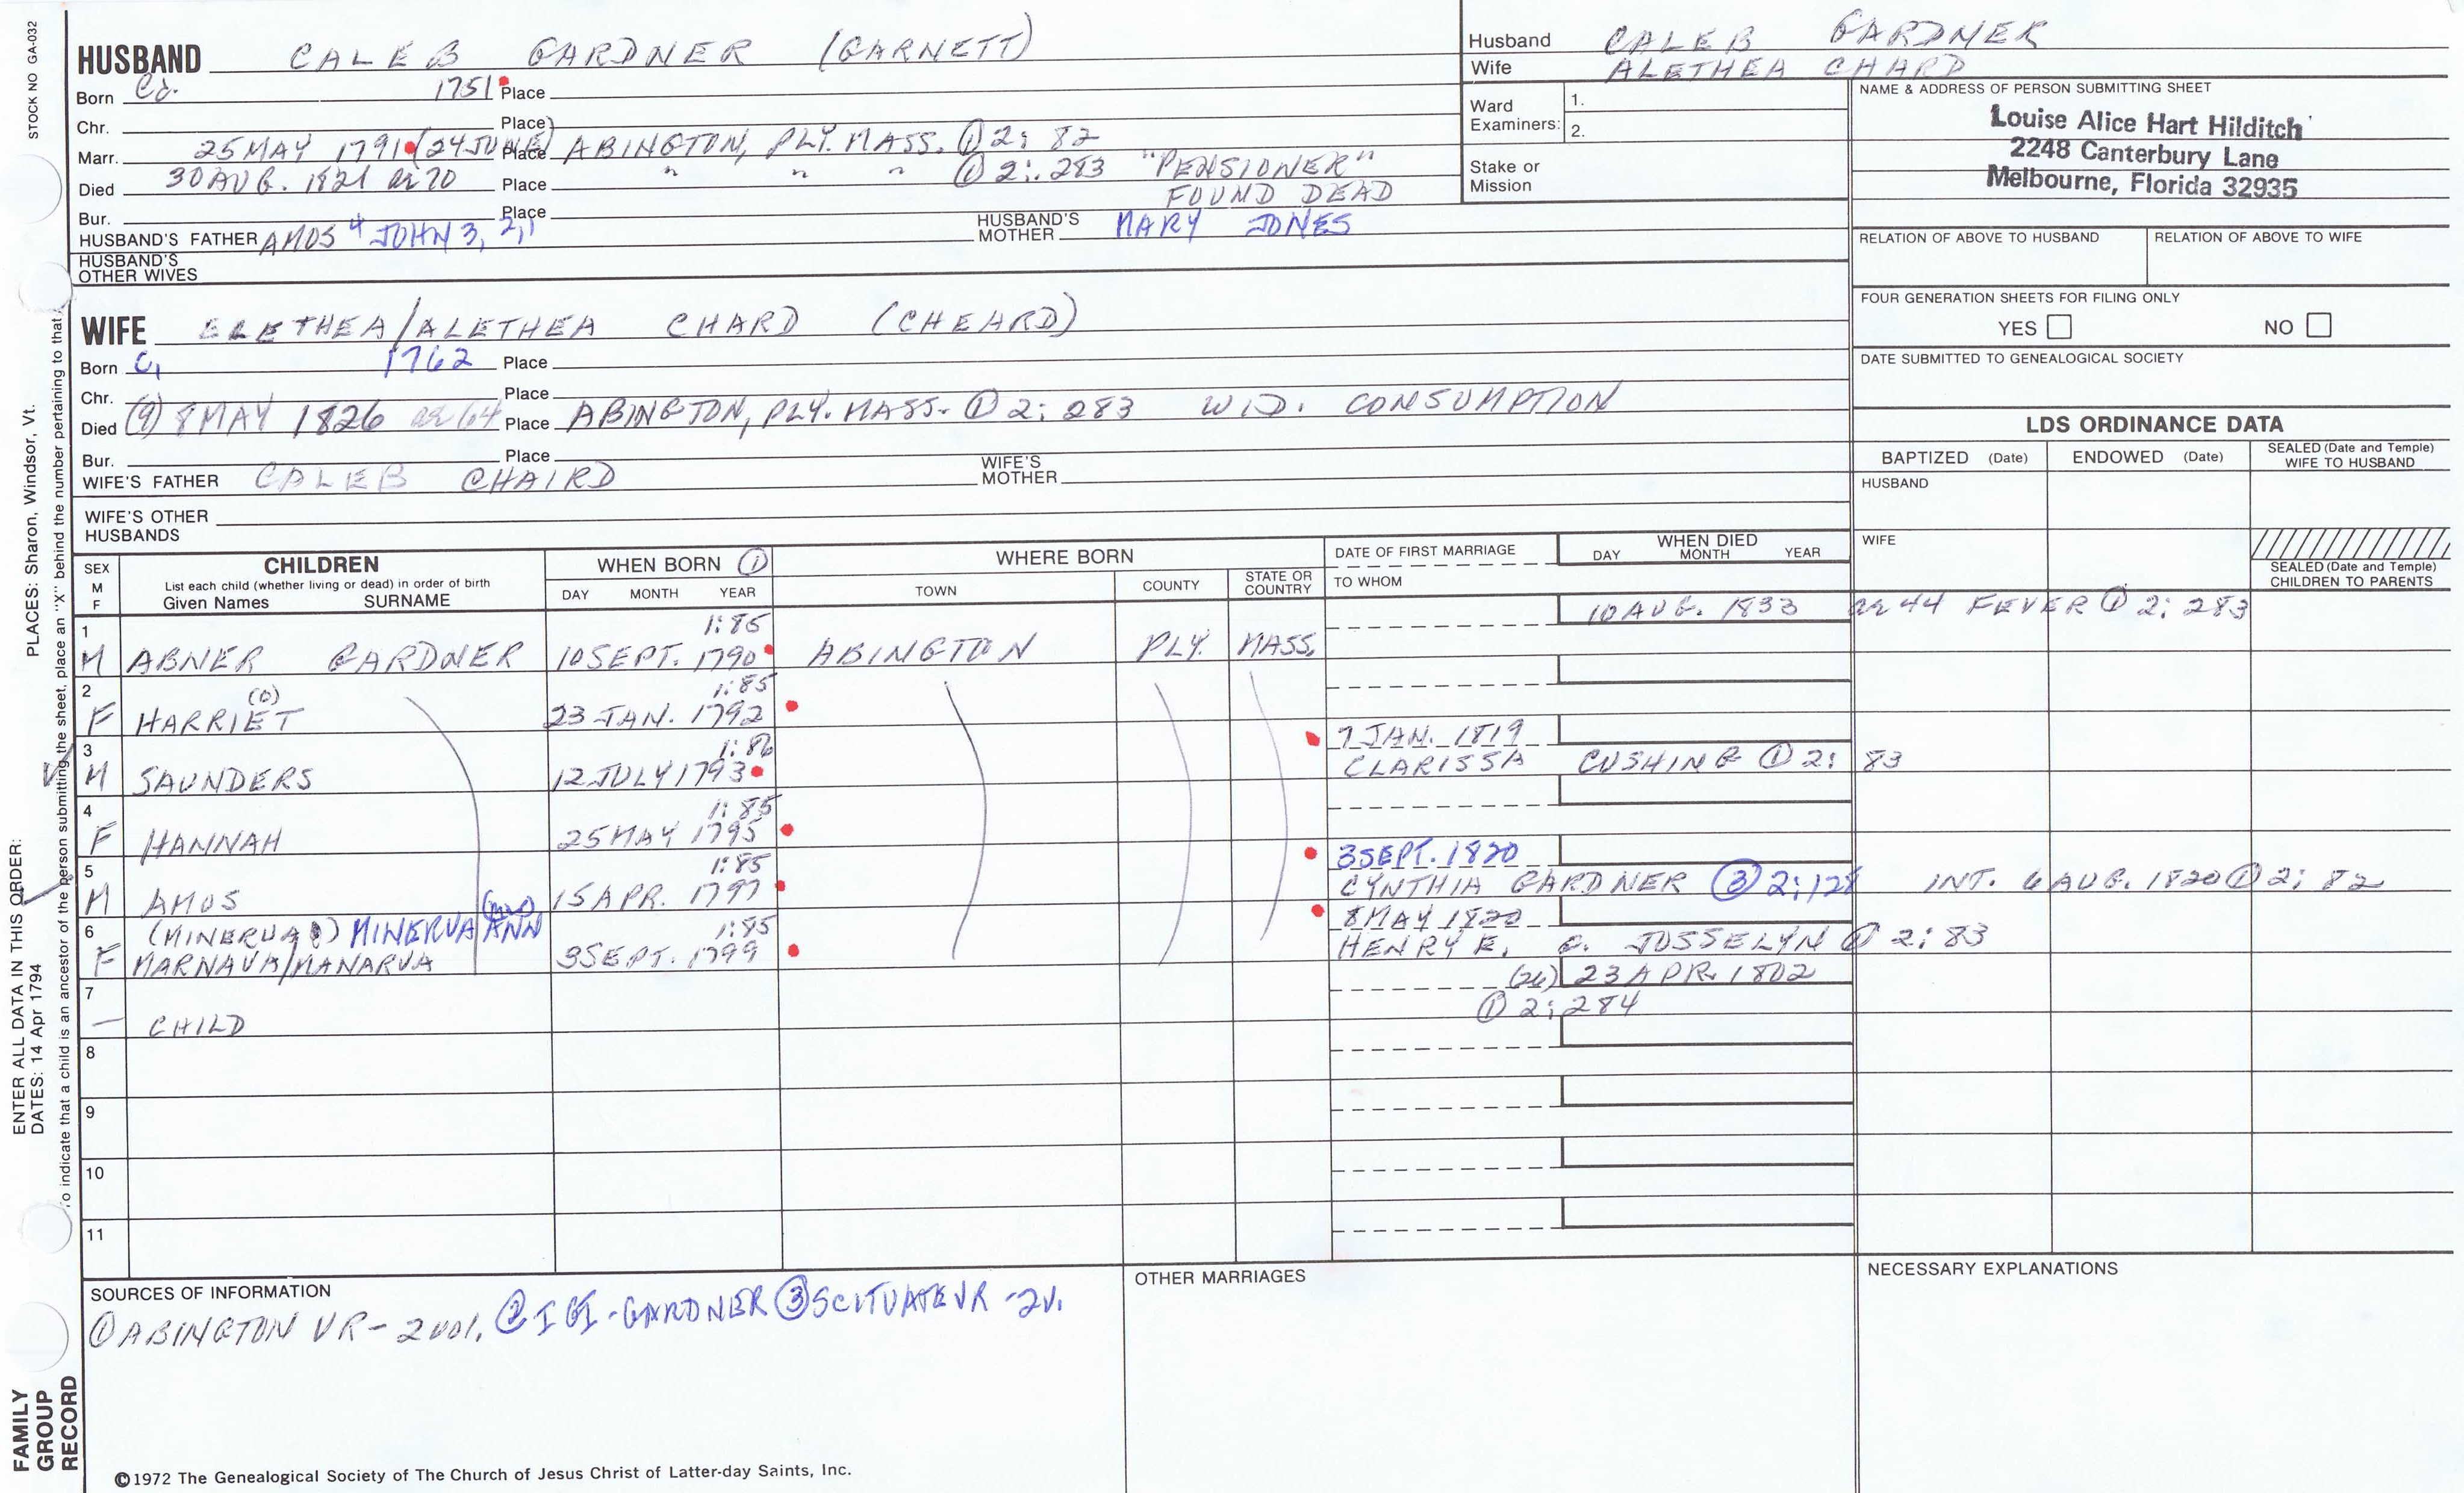 STOCK NO GA-032
HUSBAND CALEB GARDNER (GARNETT)
Born Ca. 1751 Place
Chr. Place
Marr. 25 MAY 1791 (24 JUNE) Place ABINGTON, PLY. MASS. ① 2: 82
Died 30 AUG. 1821 ae 70 Place " " " ① 2: 283 "PENSIONER"
FOUND DEAD
Bur. Place
HUSBAND'S FATHER AMOS 4 JOHN 3, 2, 1 HUSBAND'S MOTHER MARY JONES
HUSBAND'S
OTHER WIVES
Husband CALEB GARDNER
Wife ALETHEA CHARD
Ward
Examiners:
1.
2.
Stake or
Mission
NAME & ADDRESS OF PERSON SUBMITTING SHEET
Louise Alice Hart Hilditch
2248 Canterbury Lane
Melbourne, Florida 32935
RELATION OF ABOVE TO HUSBAND RELATION OF ABOVE TO WIFE
FOUR GENERATION SHEETS FOR FILING ONLY
YES NO
DATE SUBMITTED TO GENEALOGICAL SOCIETY
WIFE ELETHEA/ALETHEA CHARD (CHEARD)
Born C, 1762 Place
Chr. Place
Died (9) 8 MAY 1826 ae 64 Place ABINGTON, PLY. MASS. ① 2: 283 WID. CONSUMPTION
Bur. Place
WIFE'S FATHER CALEB CHAIRD WIFE'S MOTHER
WIFE'S OTHER
HUSBANDS
LDS ORDINANCE DATA
BAPTIZED (Date) ENDOWED (Date) SEALED (Date and Temple)
WIFE TO HUSBAND
HUSBAND
WIFE
SEALED (Date and Temple)
CHILDREN TO PARENTS
SEX
M
F
CHILDREN
List each child (whether living or dead) in order of birth
Given Names SURNAME
WHEN BORN ①
DAY MONTH YEAR
WHERE BORN
TOWN COUNTY STATE OR
COUNTRY
DATE OF FIRST MARRIAGE
TO WHOM
WHEN DIED
DAY MONTH YEAR
1 1:85 10 AUG. 1833 ae 44 FEVER ① 2: 283
M ABNER GARDNER 10 SEPT. 1790 ABINGTON PLY. MASS.
2 (O) 1:85
F HARRIET 23 JAN. 1792
3 1:86 7 JAN. 1819
M SAUNDERS 12 JULY 1793 CLARISSA CUSHING ① 2: 83
4 1:85
F HANNAH 25 MAY 1795
5 1:85 3 SEPT. 1820
M AMOS 15 APR. 1797 CYNTHIA GARDNER ③ 2:128 INT. 6 AUG. 1820 ① 2: 82
6 (MINERVA) MINERVA ANN 1:85 8 MAY 1820
F MARNAVA/MANARVA 3 SEPT. 1799 HENRY E. JOSSELYN ① 2: 83
7 (26) 23 APR. 1802
— CHILD ① 2: 284
8
9
10
11
SOURCES OF INFORMATION
① ABINGTON VR - 2 vol. ② IGI - GARDNER ③ SCITUATE VR - 2v.
OTHER MARRIAGES
NECESSARY EXPLANATIONS
©1972 The Genealogical Society of The Church of Jesus Christ of Latter-day Saints, Inc.
FAMILY
GROUP
RECORD
ENTER ALL DATA IN THIS ORDER:
DATES: 14 Apr 1794 PLACES: Sharon, Windsor, Vt.
To indicate that a child is an ancestor of the person submitting the sheet, place an "X" behind the number pertaining to that